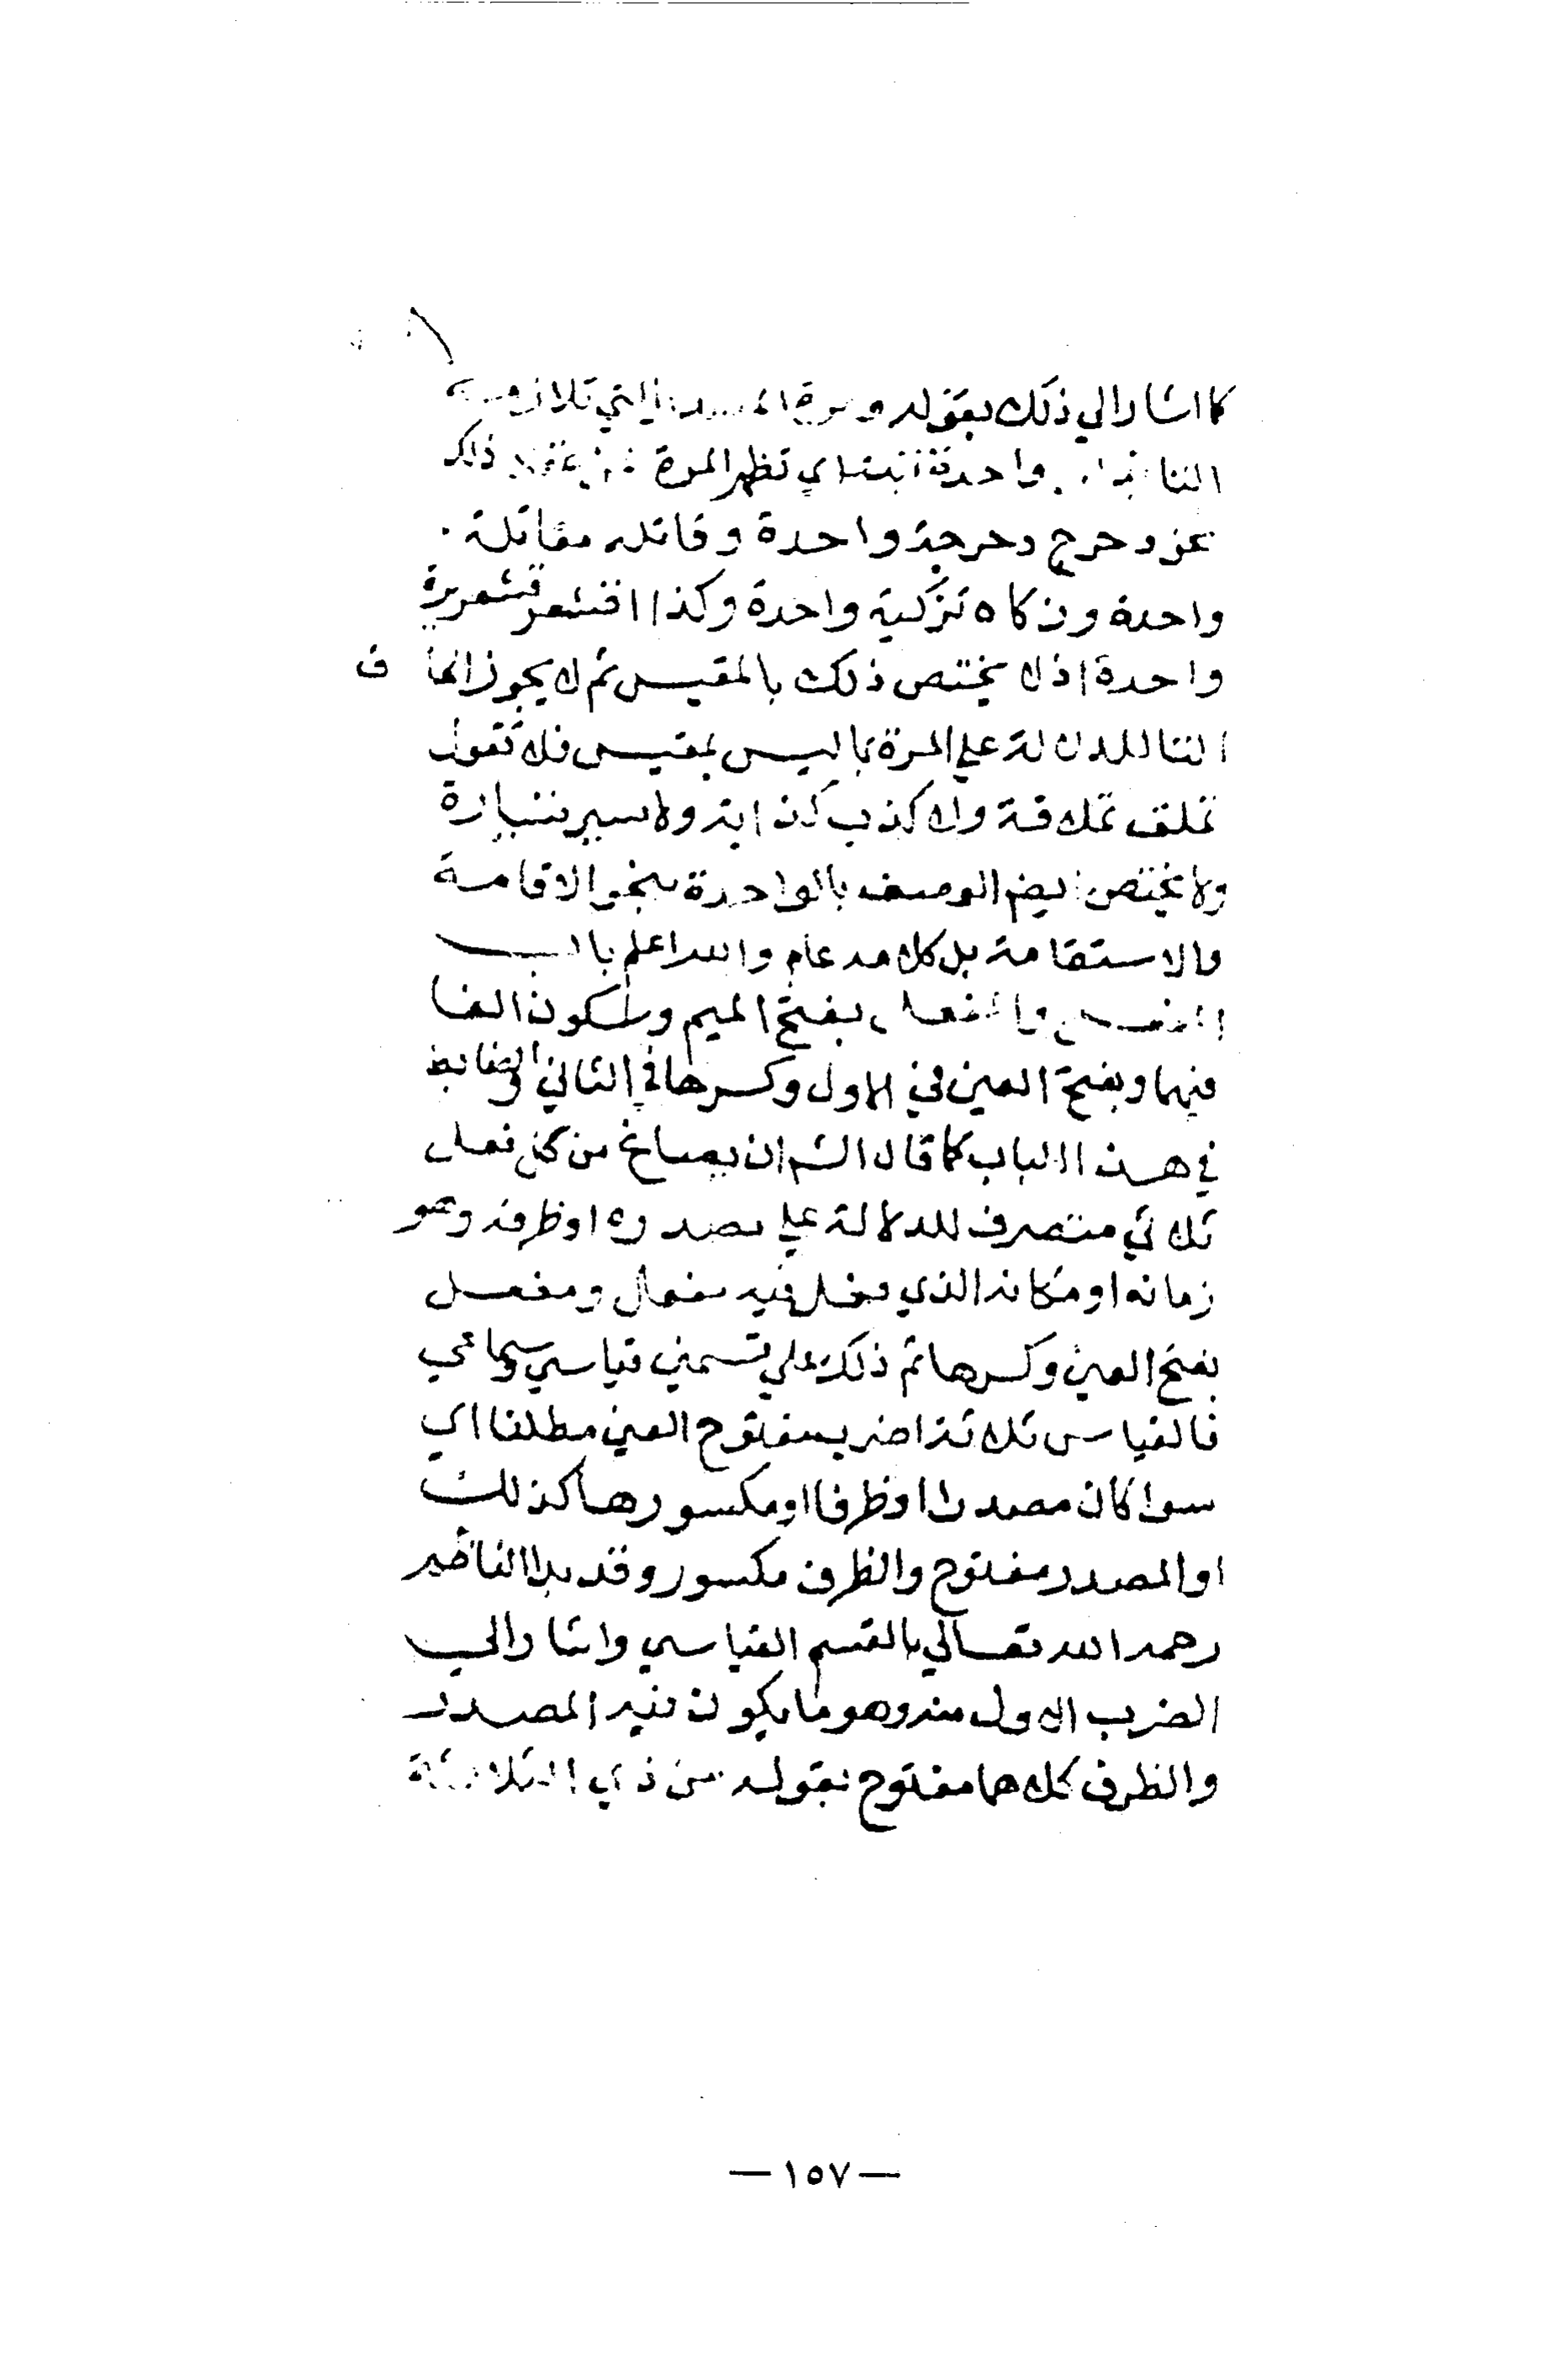 كما اشار الي ذلك بقوله ومرة المصدر الذي تلازمه
التا واحدة تبتدا اي تظهر المرة ذلك
عن دحرج دحرجة واحدة وقاتله مقاتلة
واحدة وزكاه تزكية واحدة وكذا اقشعر قشعريرة
واحدة اذ لا يختص ذلك بالمقيس ثم لا يجوز الحاق
التا للدلالة علي المرة بما ليس بمقيس فلا تقول
تملق تملاقة ولا كذب كذابة ولا سير تسيارة
ولا يختص ايضا الوصف بالواحدة بنحو الاقامة
والاستقامة بل كلامه عام والله اعلم باب
المفعل والمفعل بفتح الميم وسكون الفا
فيهما وبفتح العين في الاول وكسرها في الثاني والضابط
في هذا الباب كما قال الش ان يصاغ من كل فعل
ثلاثي متصرف للدلالة علي مصدره او ظرفه وهو
زمانه او مكانه الذي فعل فيه مفعل ومفعل
بفتح العين وكسرها ثم ذلك علي قسمين قياسي وسماعي
فالقياس ثلاثة اضرب مفتوح العين مطلقا اي
سوا كان مصدرا او ظرفا او مكسورها كذلك
او المصدر مفتوح والظرف مكسور وقد بدا الناظم
رحمه الله تعالي بالقسم القياسي واشار الي
الضرب الاول منه وهو ما يكون فيه المصدر
والظرف كلاهما مفتوح بقوله من ذي الثلاثة
— ١٥٧ —